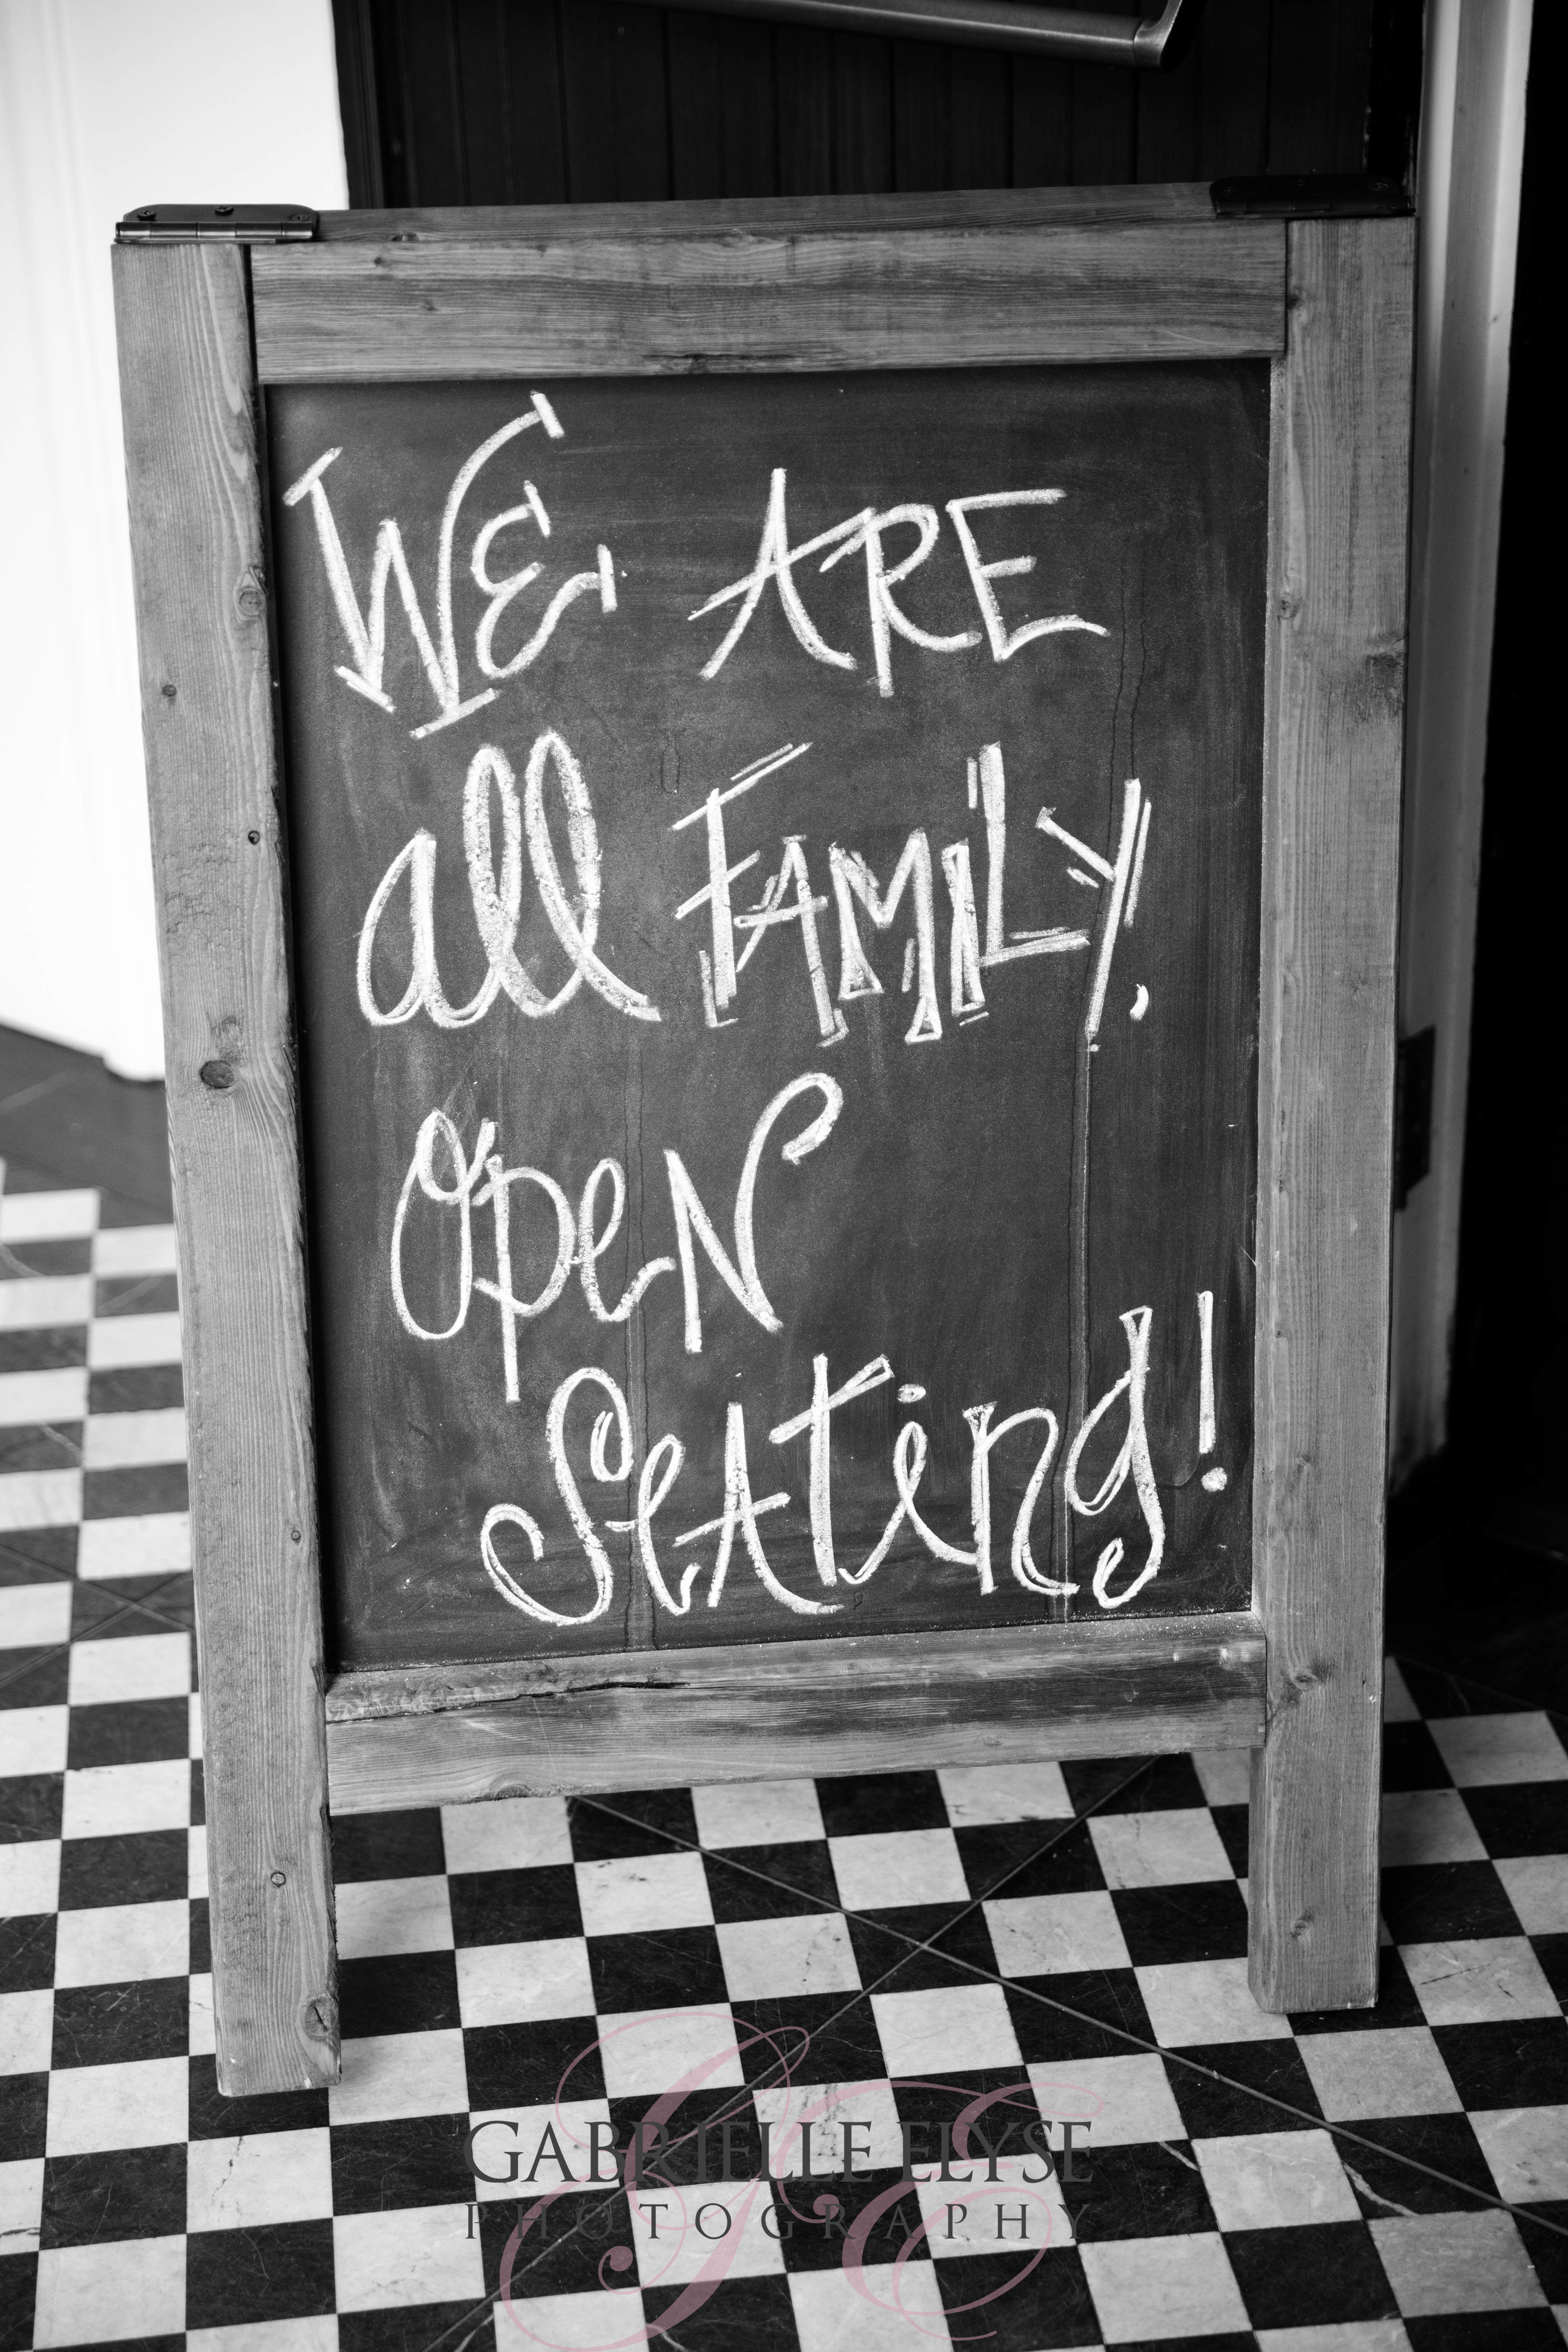 WE ARE
all FAMiLY.
OpeN
SeATing!
GABRIELLE ELYSE
PHOTOGRAPHY